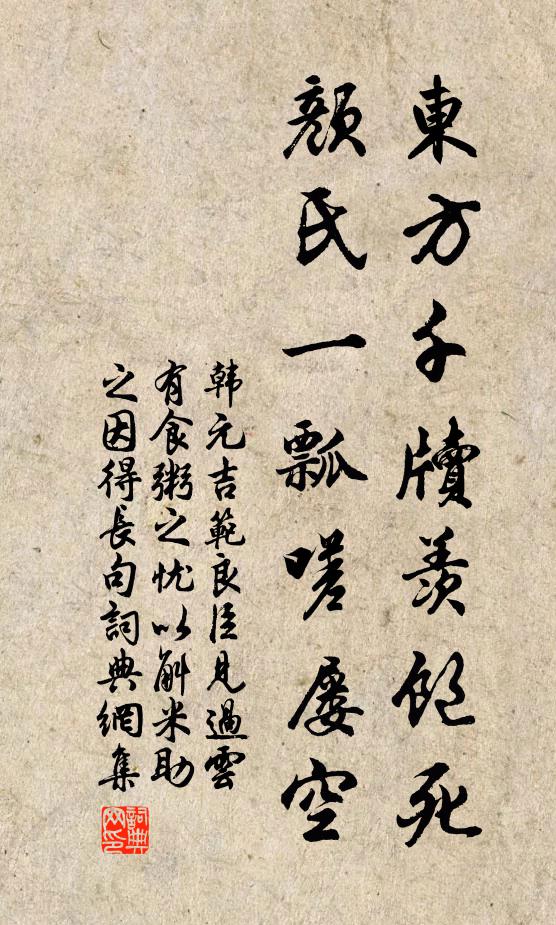 東方千牘羨飽死
顏氏一瓢嗟屡空
韩元吉範良臣見過雲
有食粥之忧以斛米助
之因得長句詞典網集
詞典
网印